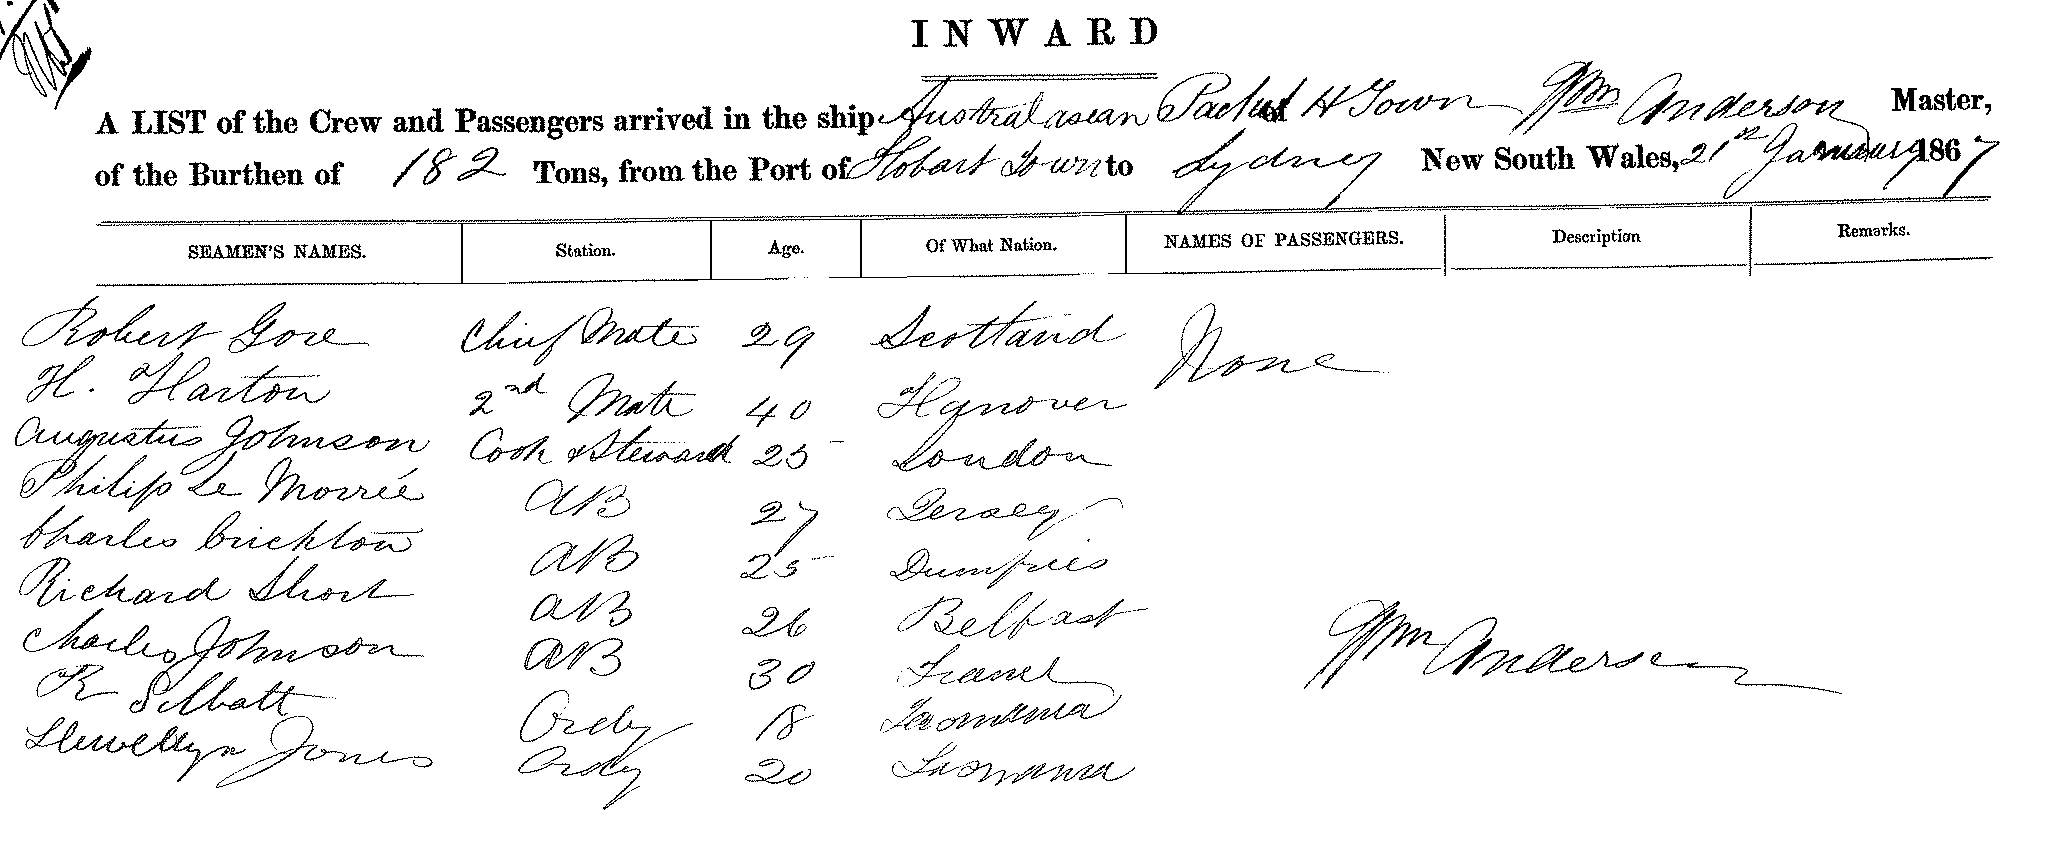 INWARD
A LIST of the Crew and Passengers arrived in the ship Australasian Packet of H Town Wm Anderson Master,
of the Burthen of 182 Tons, from the Port of Hobart Town to Sydney New South Wales, 21st January 1867
SEAMEN'S NAMES. Station. Age. Of What Nation. NAMES OF PASSENGERS. Description Remarks.
Robert Gore Chief Mate 29 Scotland None
H. Harton 2nd Mate 40 Hanover
Augustus Johnson Cook & Steward 25 London
Philip Le Morrée AB 27 Jersey
Charles Crickton AB 25 Dumfries
Richard Short AB 26 Belfast
Charles Johnson AB 30 France
R Sibbatt Ordy 18 Tasmania
Llewellyn Jones Ordy 20 Tasmania
Wm Anderson